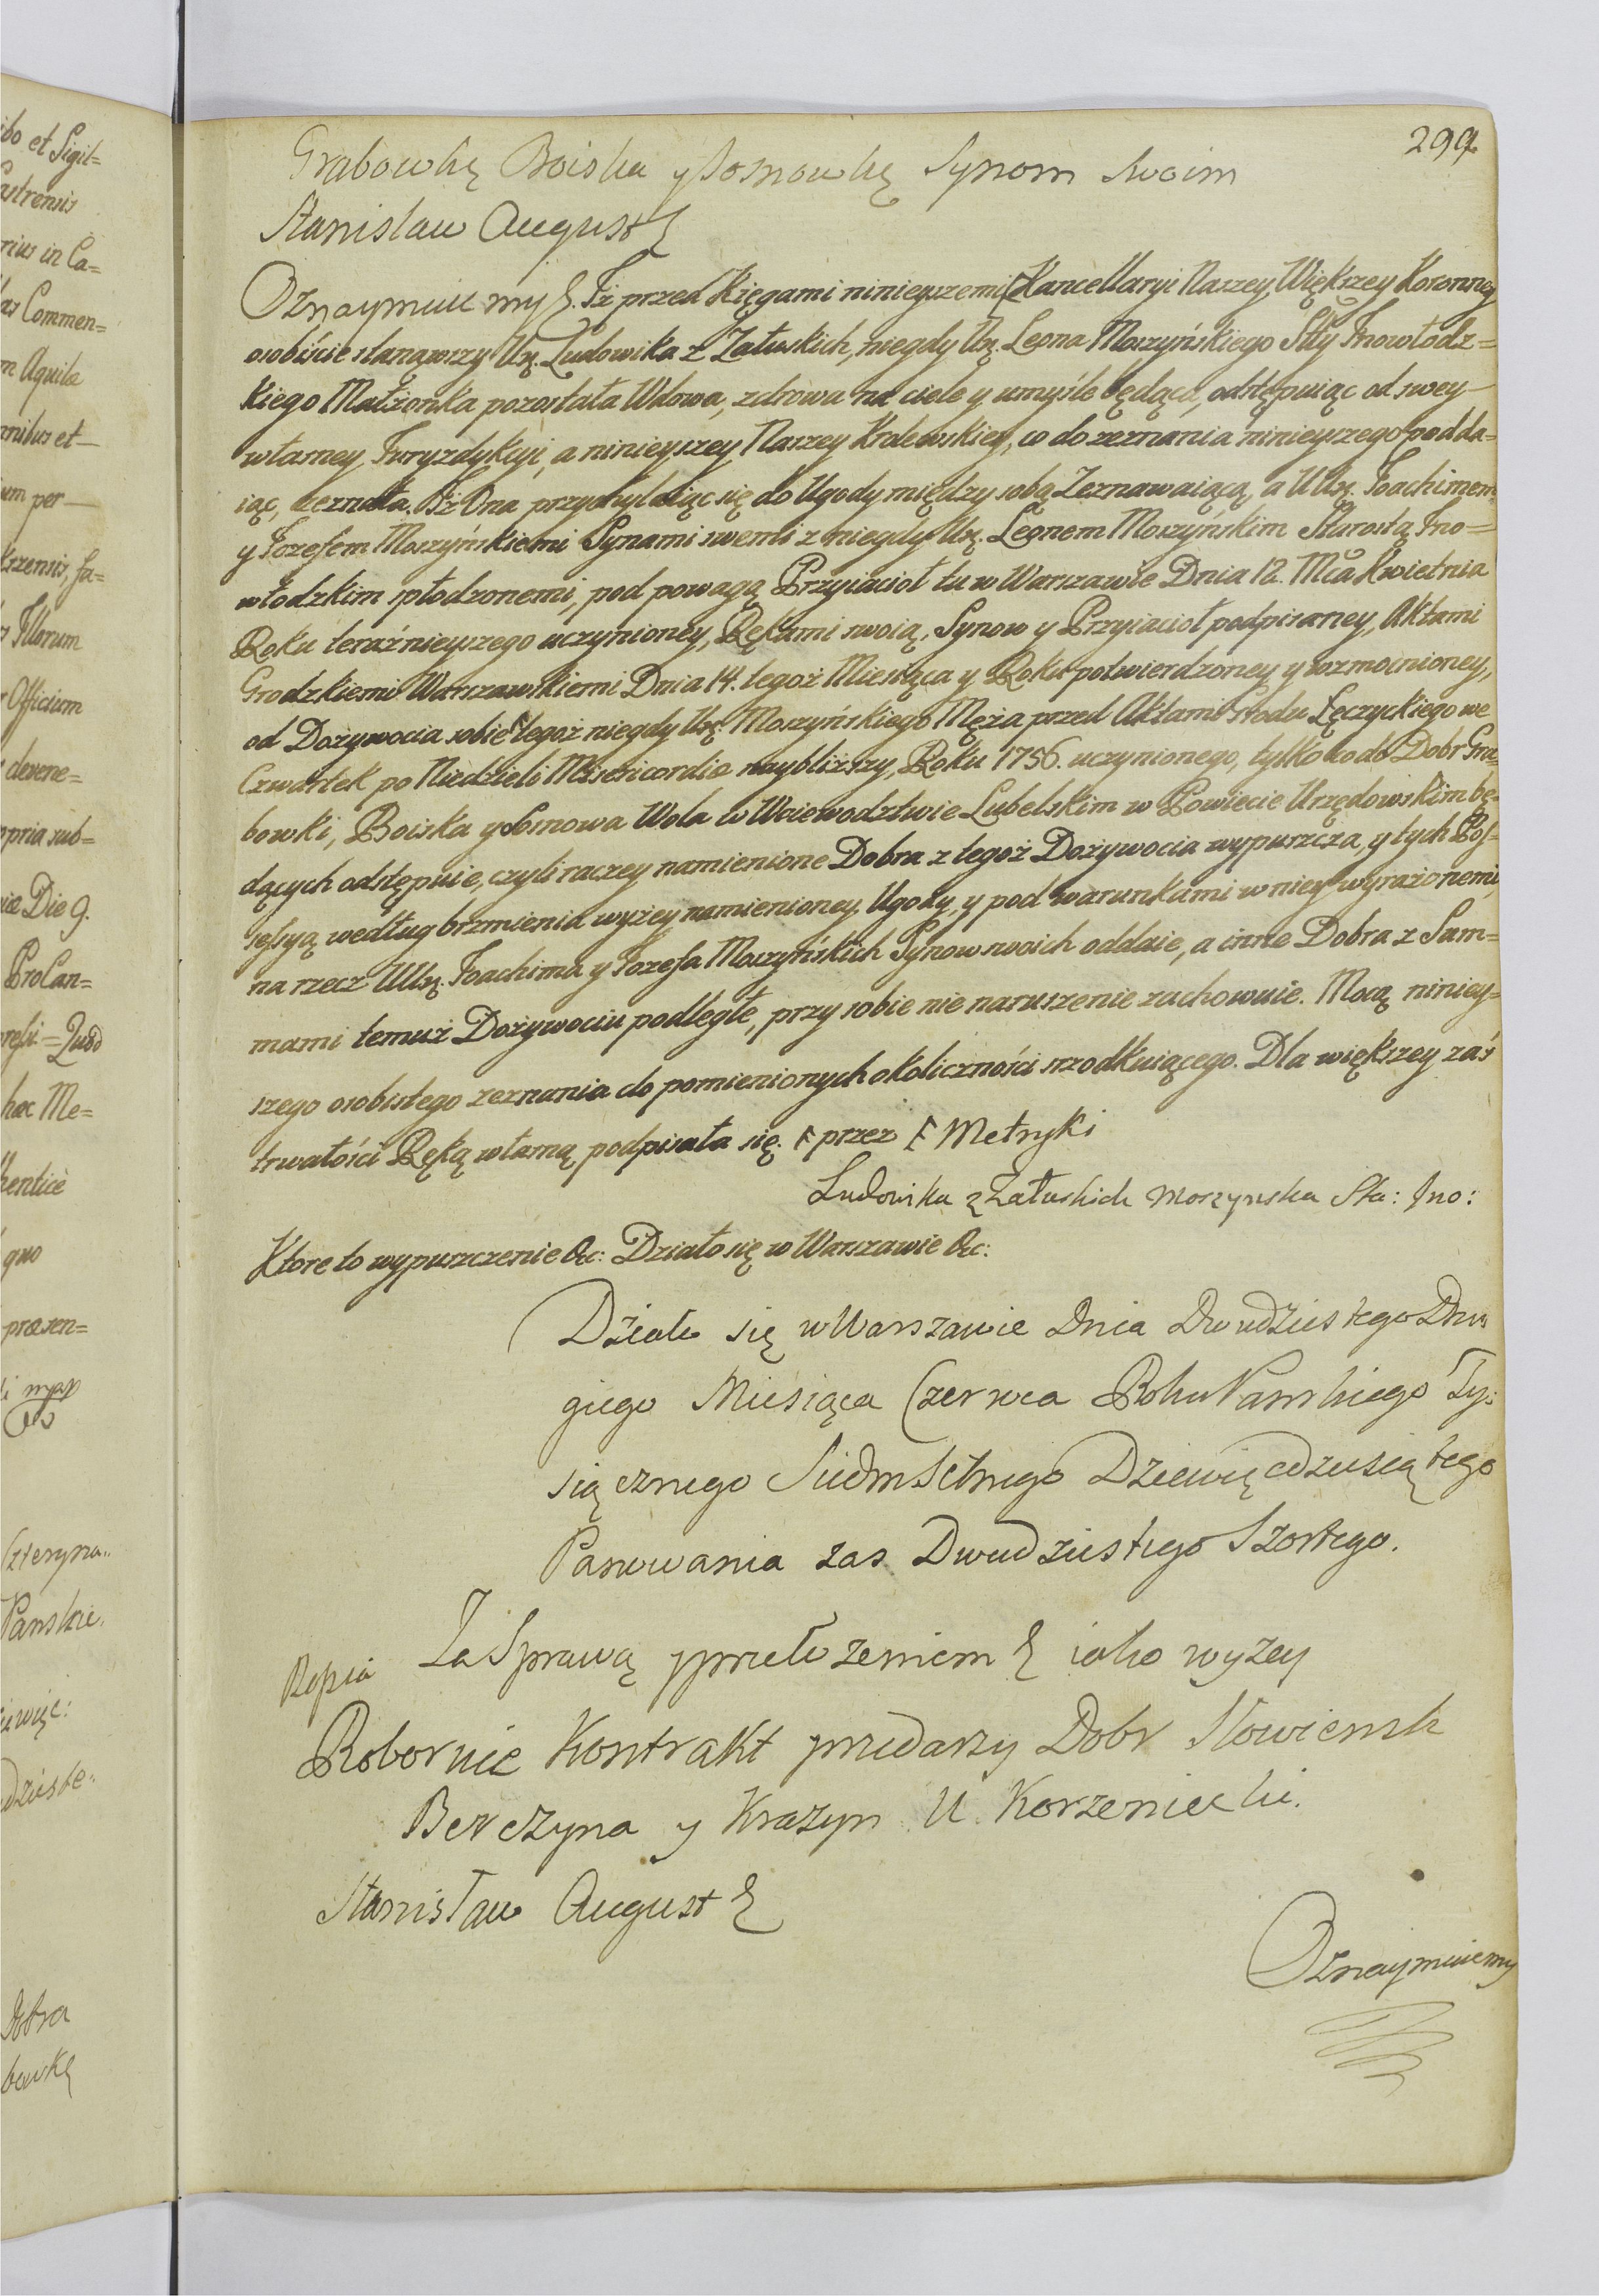 299
Grabowkę Boiska y Sosnowkę Synom Swoim
Stanislaw August
Oznaymuiemy Iż przed Xięgami ninieyszemi Kancellaryi Naszey Większey Koronney
osobiście stanąwszy Ur. Ludowika z Załuskich, niegdy Ur. Leona Moszyńskiego Stty Inowłodz=
kiego Małżonka pozostała Wdowa, zdrowa na ciele y umyśle będąca, odstępuiąc od swey
własney Juryzdykcyi, a ninieyszey Naszey Krolewskiey, co do zeznania ninieyszego podda=
iąc, zeznała. Iż Ona przychylaiąc się do Ugody między sobą Zeznawaiącą, a UUr. Joachimem
y Jozefem Moszyńskiemi Synami swemi z niegdy Ur. Leonem Moszyńskim Starostą Ino=
włodzkim spłodzonemi, pod powagą Przyiacioł tu w Warszawie Dnia 12. Mca Kwietnia
Roku teraźnieyszego uczynioney, Rękami swoią, Synow y Przyiacioł podpisaney, Aktami
Grodzkiemi Warszawskiemi Dnia 14. tegoż Miesiąca y Roku potwierdzoney y wzmocnioney,
od Dożywocia sobie tegoż niegdy Ur. Moszyńskiego Męża przed Aktami Grodu Łęczyckiego we
Czwartek po Niedzieli Misericordiæ naybliższy, Roku 1756. uczynionego, tylko co do Dobr Gra=
bowki, Boiska y Sosnowa Wola w Woiewodztwie Lubelskim w Powiecie Urzędowskim bę=
dących odstępuie, czyli raczey namienione Dobra z tegoż Dożywocia wypuszcza, y tych Pos=
sessyą według brzmienia wyżey namienioney Ugody, y pod warunkami w niey wyrażonemi,
na rzecz UUr. Joachima y Jozefa Moszyńskich Synow swoich oddaie, a inne Dobra z Sum=
mami temuż Dożywociu podległe, przy sobie nie naruszenie zachowuie. Mocą niniey=
szego osobistego zeznania do pomienionych okoliczności srzodkuiącego. Dla większey zaś
trwałości Ręką własną podpisała się. przez Metryki
Ludowika z Załuskich Moszynska Sta: Ino:
Ktore to wypuszczenie &c: Działo się w Warszawie &c:
Działo się w Warszawie Dnia Dwudziestego Dru
giego Miesiąca Czerwca Roku Panskiego Ty:
siącznego Siedmsetnego Dziewięcdziesiątego
Panowania zas Dwudziestego Szostego.
Za Sprawą y przełozeniem iako wyzey
Roboruie Kontrakt przedarzy Dobr Slowiensk
Berczyna y Krazyn U. Korzeniecki.
Stanisław August
Oznaymuiemy